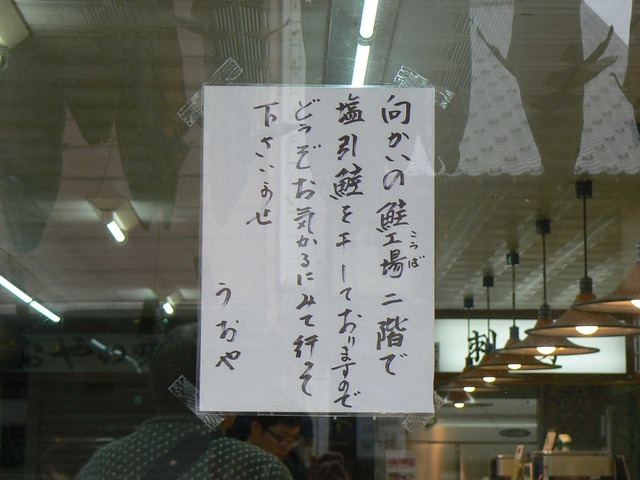 向かいの鮭工場二階で
こうば
塩引鮭を干しておりますので
どうぞお気がるにみて行って
下さいませ
うおや